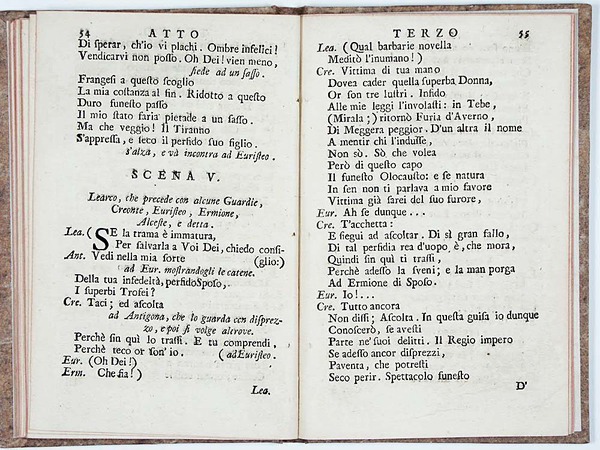 54 ATTO
Di sperar, ch'io vi plachi. Ombre infelici!
Vendicarvi non posso. Oh Dei! vien meno,
siede ad un sasso.
Frangesi a questo scoglio
La mia costanza al fin. Ridotto a questo
Duro funesto passo
Il mio stato faria pietade a un sasso.
Ma che veggio! Il Tiranno
S'appressa, e seco il perfido suo figlio.
s'alza, e và incontra ad Euristeo.
SCENA V.
Learco, che precede con alcune Guardie,
Creonte, Euristeo, Ermione,
Alceste, e detta.
Lea. (SE la trama è immatura,
Per salvarla a Voi Dei, chiedo consi-
Ant. Vedi nella mia sorte (glio:)
ad Eur. mostrandogli le catene.
Della tua infedeltà, perfido Sposo,
I superbi Trofei?
Cre. Taci; ed ascolta
ad Antigona, che lo guarda con disprez-
zo, e poi si volge altrove.
Perchè sin quì lo trassi. E tu comprendi,
Perchè teco or son' io. (ad Euristeo.
Eur. (Oh Dei!)
Erm. Che fia!)
Lea.
TERZO 55
Lea. (Qual barbarie novella
Meditò l'inumano!)
Cre. Vittima di tua mano
Dovea cader quella superba Donna,
Or son tre lustri. Infido
Alle mie leggi l'involasti: in Tebe,
(Mirala;) ritornò Furia d'Averno,
Di Meggera peggior. D'un altra il nome
A mentir chi l'indusse,
Non sò. Sò che volea
Però di questo capo
Il funesto Olocausto: e se natura
In sen non ti parlava a mio favore
Vittima già sarei del suo furore,
Eur. Ah se dunque...
Cre. T'accheta:
E siegui ad ascoltar. Di sì gran fallo,
Di tal perfidia rea d'uopo è, che mora,
Quindi sin quì ti trassi,
Perchè adesso la sveni; e la man porga
Ad Ermione di Sposo.
Eur. Io!...
Cre. Tutto ancora
Non dissi; Ascolta. In questa guisa io dunque
Conoscerò, se avesti
Parte ne' suoi delitti. Il Regio impero
Se adesso ancor disprezzi,
Paventa, che potresti
Seco perir. Spettacolo funesto
D'